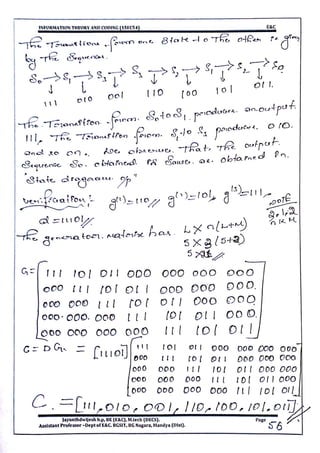 INFORMATION THEORY AND CODING (15EC54) E&C
The Transition from one State to The other is given
by The Sequence.
S0 → S1 → S3 → S3 → S2 → S1 → S2 → S0
111 010 001 110 100 101 011.
The Transition from S0 to S1 produces an output
111, The Transition from S1 to S3 produces 010.
and so on. We observe That, The output
Sequence So obtained is Same as obtained in
"State diagram of"
Verification: g(1)=110// g(2)=101, g(3)=111//
d=11101//
The generator matrix has L × n(L+M)
5 × 3 (5+2)
5 × 21//
G = [ 111 101 011 000 000 000 000
000 111 101 011 000 000 000.
000 000 111 101 011 000 000.
000. 000. 000 111 101 011 000.
000 000 000 000 111 101 011 ]
C = D G = [11101] [ 111 101 011 000 000 000 000
000 111 101 011 000 000 000
000 000 111 101 011 000 000
000 000 000 111 101 011 000
000 000 000 000 111 101 011 ]
C = [111, 010, 001, 110, 100, 101, 011]
Page
Assistant Professor – Dept of E&C, BGSIT, BG Nagara, Mandya (Dist). 56